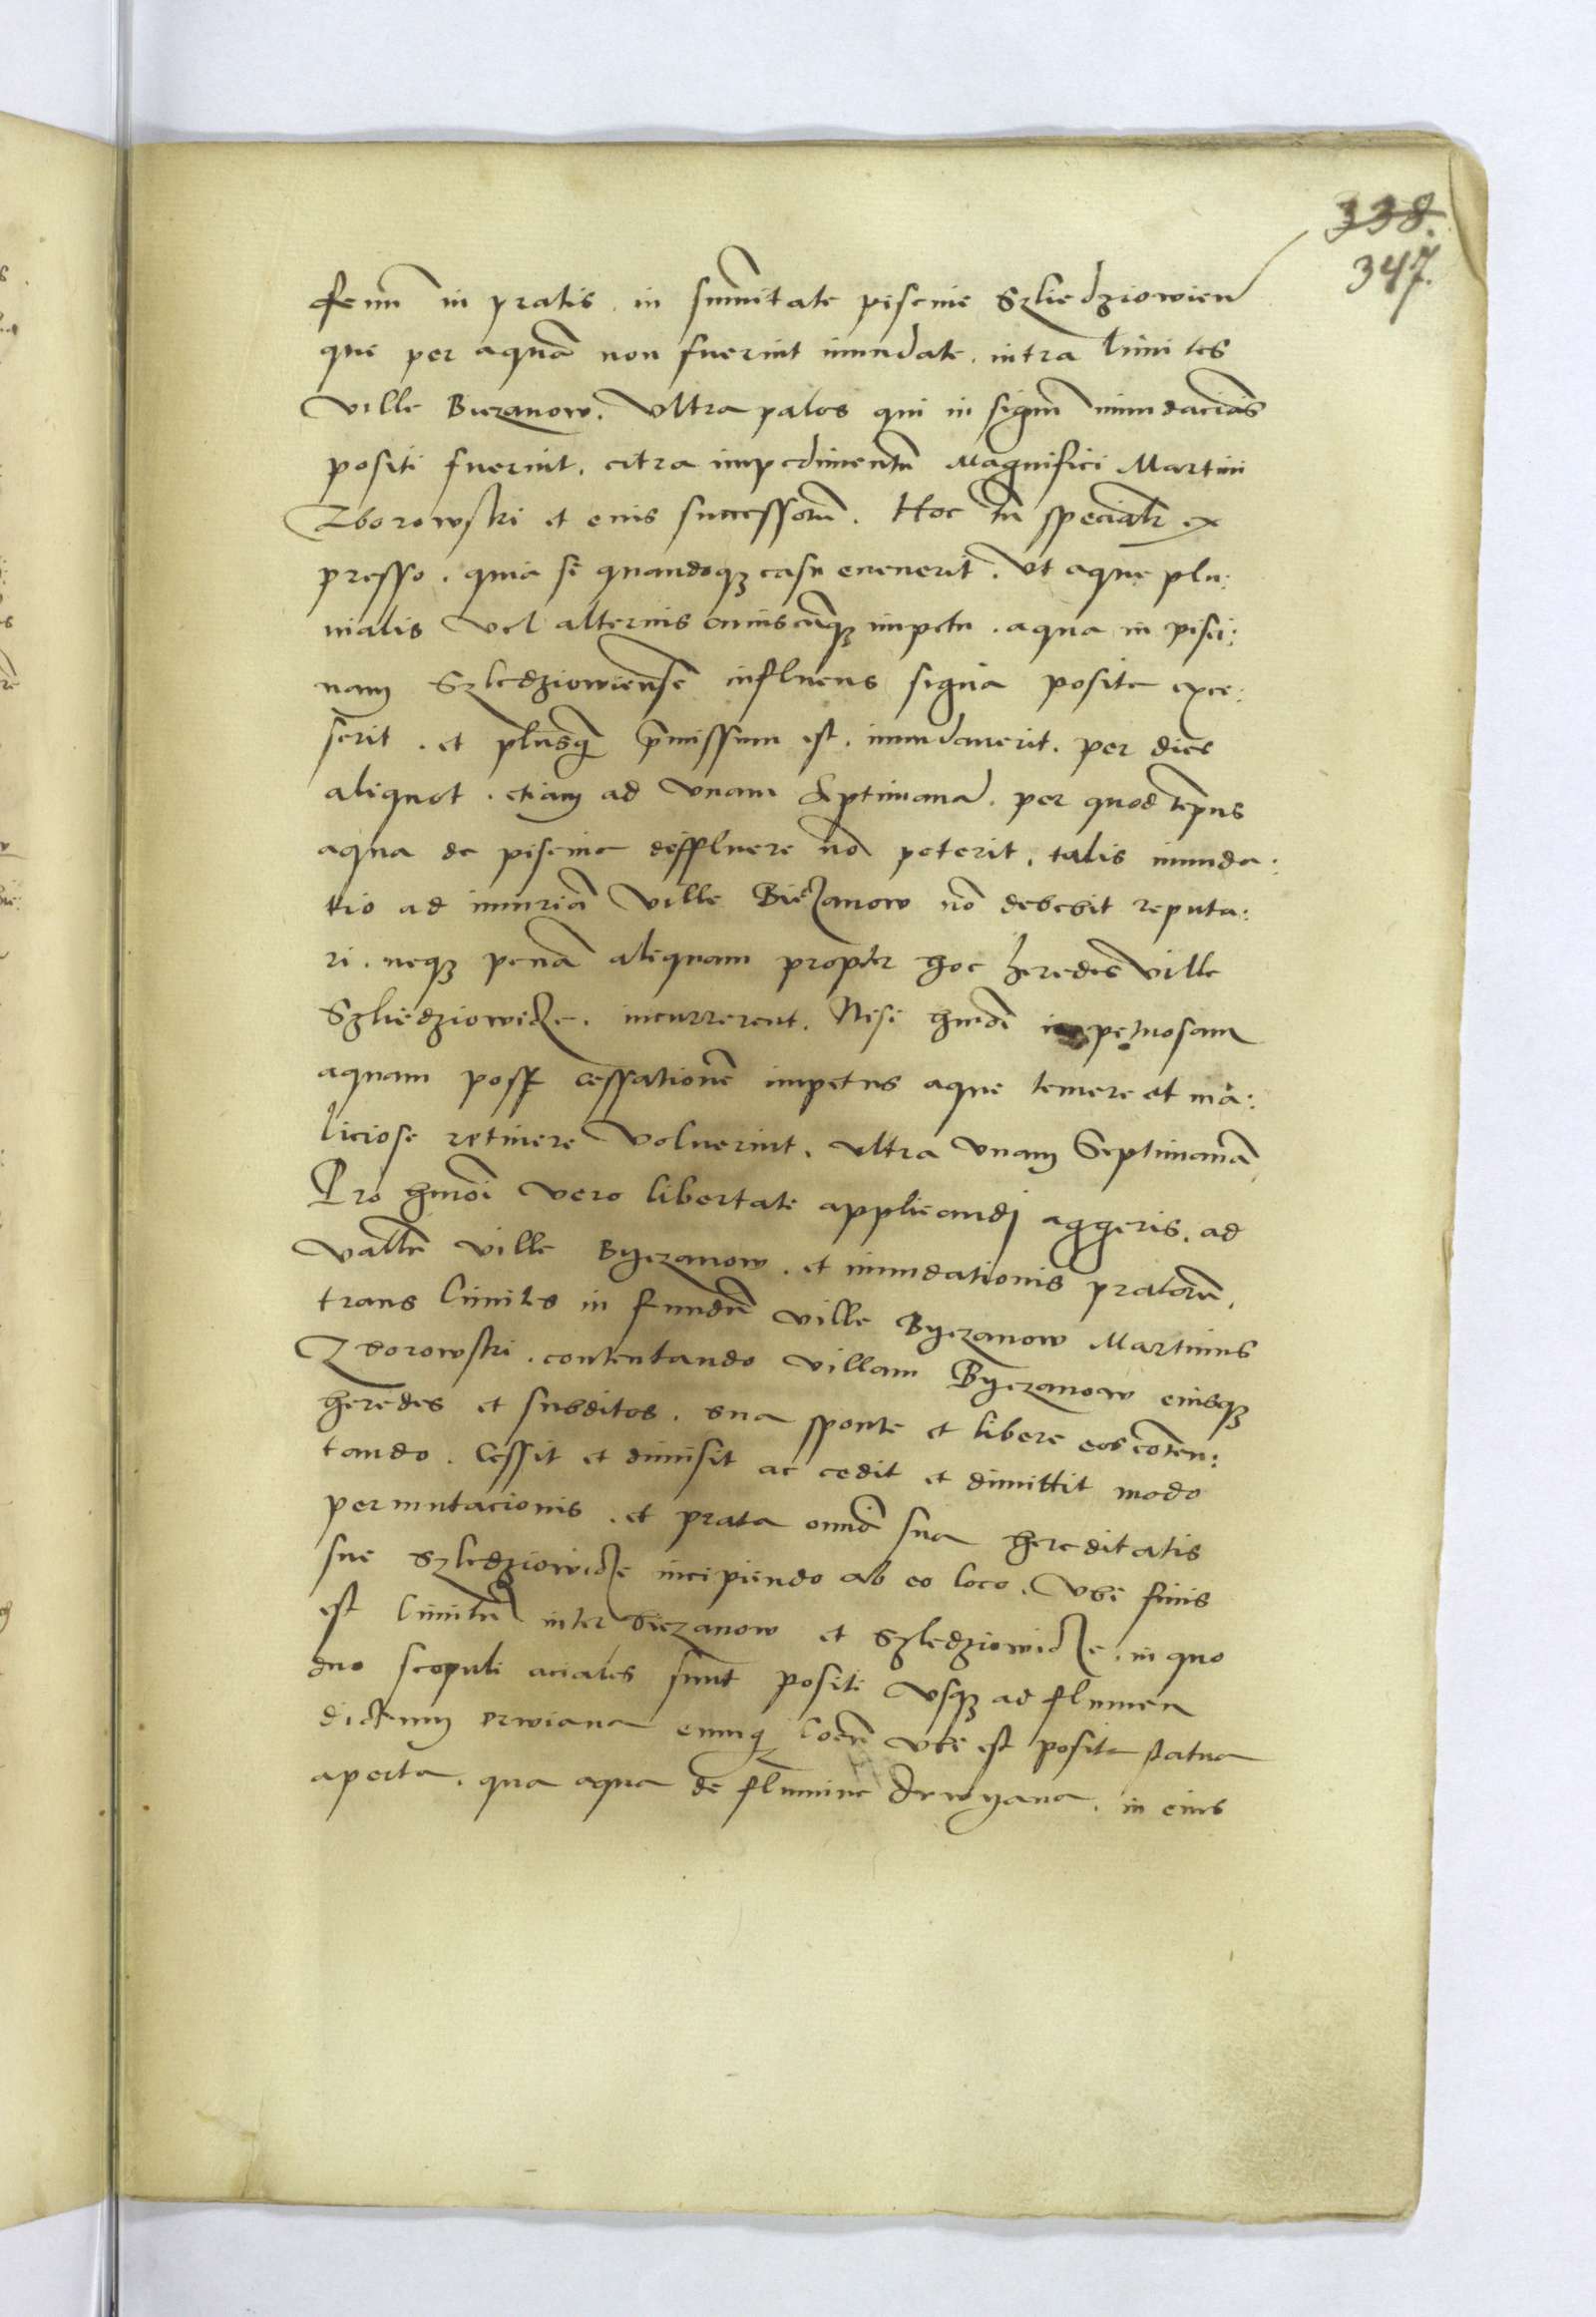 338.
347.
fenū in pratis . in sum̄itate piscine Szliedziowien
que per aquā non fuerint inundate . intra limites
ville Biezanow . Vltra palos qui in signū inundaciōis
positi fuerint . citra impedimentū Magnifici Martini
Zborowski et eius successorū . Hoc tn̄ specialr̄ ex
presso . quia si quandoqȝ casu euenerit . Vt aque plu:
uialis Vel alterius cuiuscūqȝ impetu . aqua in pisci:
nam Szledziowiensē influens signa posita exce:
serit . et plusq̄ p̄missum est . inundauerit . per dies
aliquot . etiam ad Vnam septimanā . per quod temp̄us
aqua de piscina deffluere nō poterit . talis inunda:
tio ad iniuriā Ville Biezanow nō debebit reputa:
ri . neqȝ penā aliquam propter hoc heredes Ville
Szliedziowicze . incurrerent . Nisi hmōi impetuosam
aquam post cessationē impetus aque temere et ma:
liciose retinere Voluerint . vltra vnam Septimanā
Pro hmōi vero libertate applicandj aggeris . ad
Vallē ville Byezanow . et inundationis pratorū .
trans limites in fundū ville Byezanow Martinus
Zborowski . contentando villam Byezanow eiusqȝ
heredes et subditos . sua sponte et libere eos cōten:
tando . Cessit et dimisit ac cedit et dimittit modo
permutacionis . et prata omnia sua hereditatis
sue Szledziowicze incipiendo ab eo loco . Vbi finis
est limitū inter Biezanow et Szledziowicze . in quo
duo scopuli aciales sunt positi Vsqȝ ad flumen
dictum Drwiana locū vbi est posita statua
aperta . qua aqua de flumine Drwyana . in eius